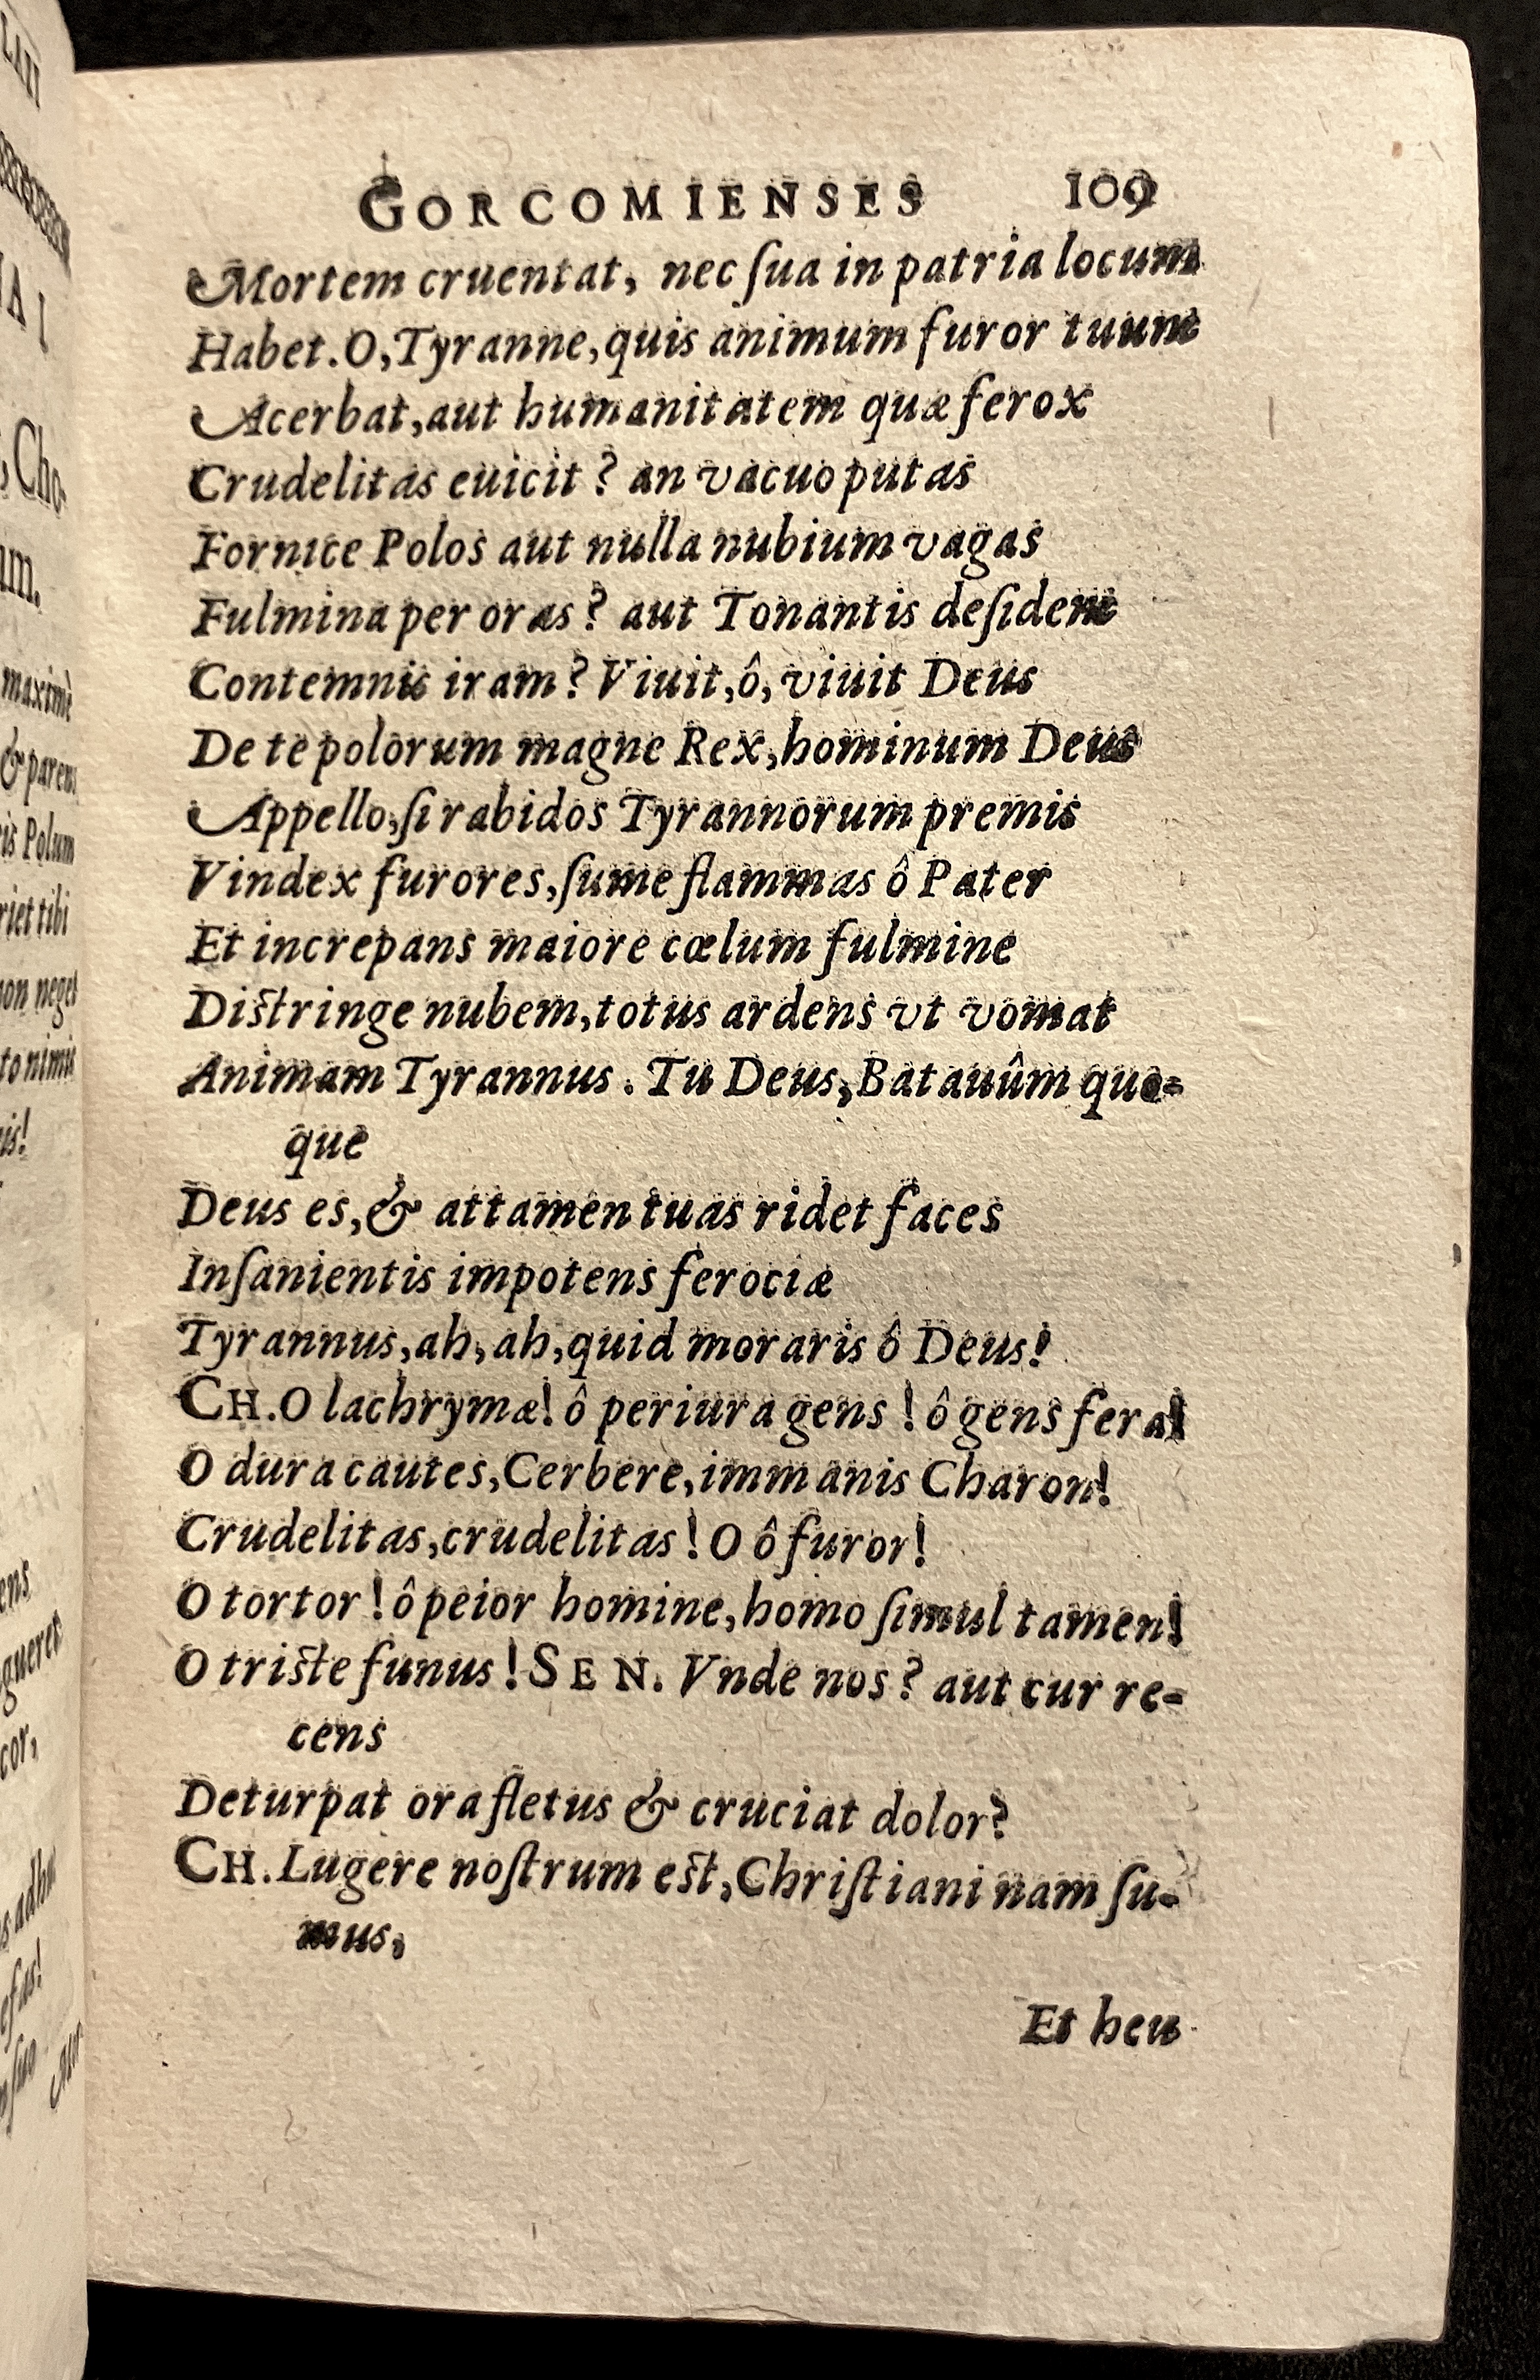 LAII
A I
, Cho-
um.
maximè
& parens
is Polum
riet tibi
non neget
to nimis
is!
ens
gueret
cor,
s adhuc
efas!
suo
Mor-
GORCOMIENSES 109
Mortem cruentat, nec ſua in patria locum
Habet. O, Tyranne, quis animum furor tuum
Acerbat, aut humanitatem quæ ferox
Crudelitas euicit? an vacuo putas
Fornice Polos aut nulla nubium vagas
Fulmina per oras? aut Tonantis deſidem
Contemnis iram? Viuit, ô, viuit Deus
De te polorum magne Rex, hominum Deus
Appello, ſi rabidos Tyrannorum premis
Vindex furores, ſume flammas ô Pater
Et increpans maiore cœlum fulmine
Diſtringe nubem, totus ardens vt vomat
Animam Tyrannus. Tu Deus, Batauûm quo-
que
Deus es, & attamen tuas ridet faces
Inſanientis impotens ferociæ
Tyrannus, ah, ah, quid moraris ô Deus!
CH. O lachrymæ! ô periura gens! ô gens fera!
O dura cautes, Cerbere, immanis Charon!
Crudelitas, crudelitas! O ô furor!
O tortor! ô peior homine, homo ſimul tamen!
O triſte funus! SEN. Vnde nos? aut cur re-
cens
Deturpat ora fletus & cruciat dolor?
CH. Lugere noſtrum eſt, Chriſtiani nam ſu-
mus,
Et heu